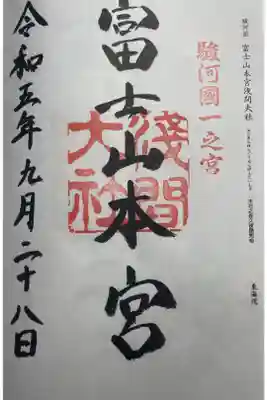 駿河国 富士山本宮浅間大社
東海院
駿河國一之宮
富士山本宮
淺間大社
令和五年九月二十八日